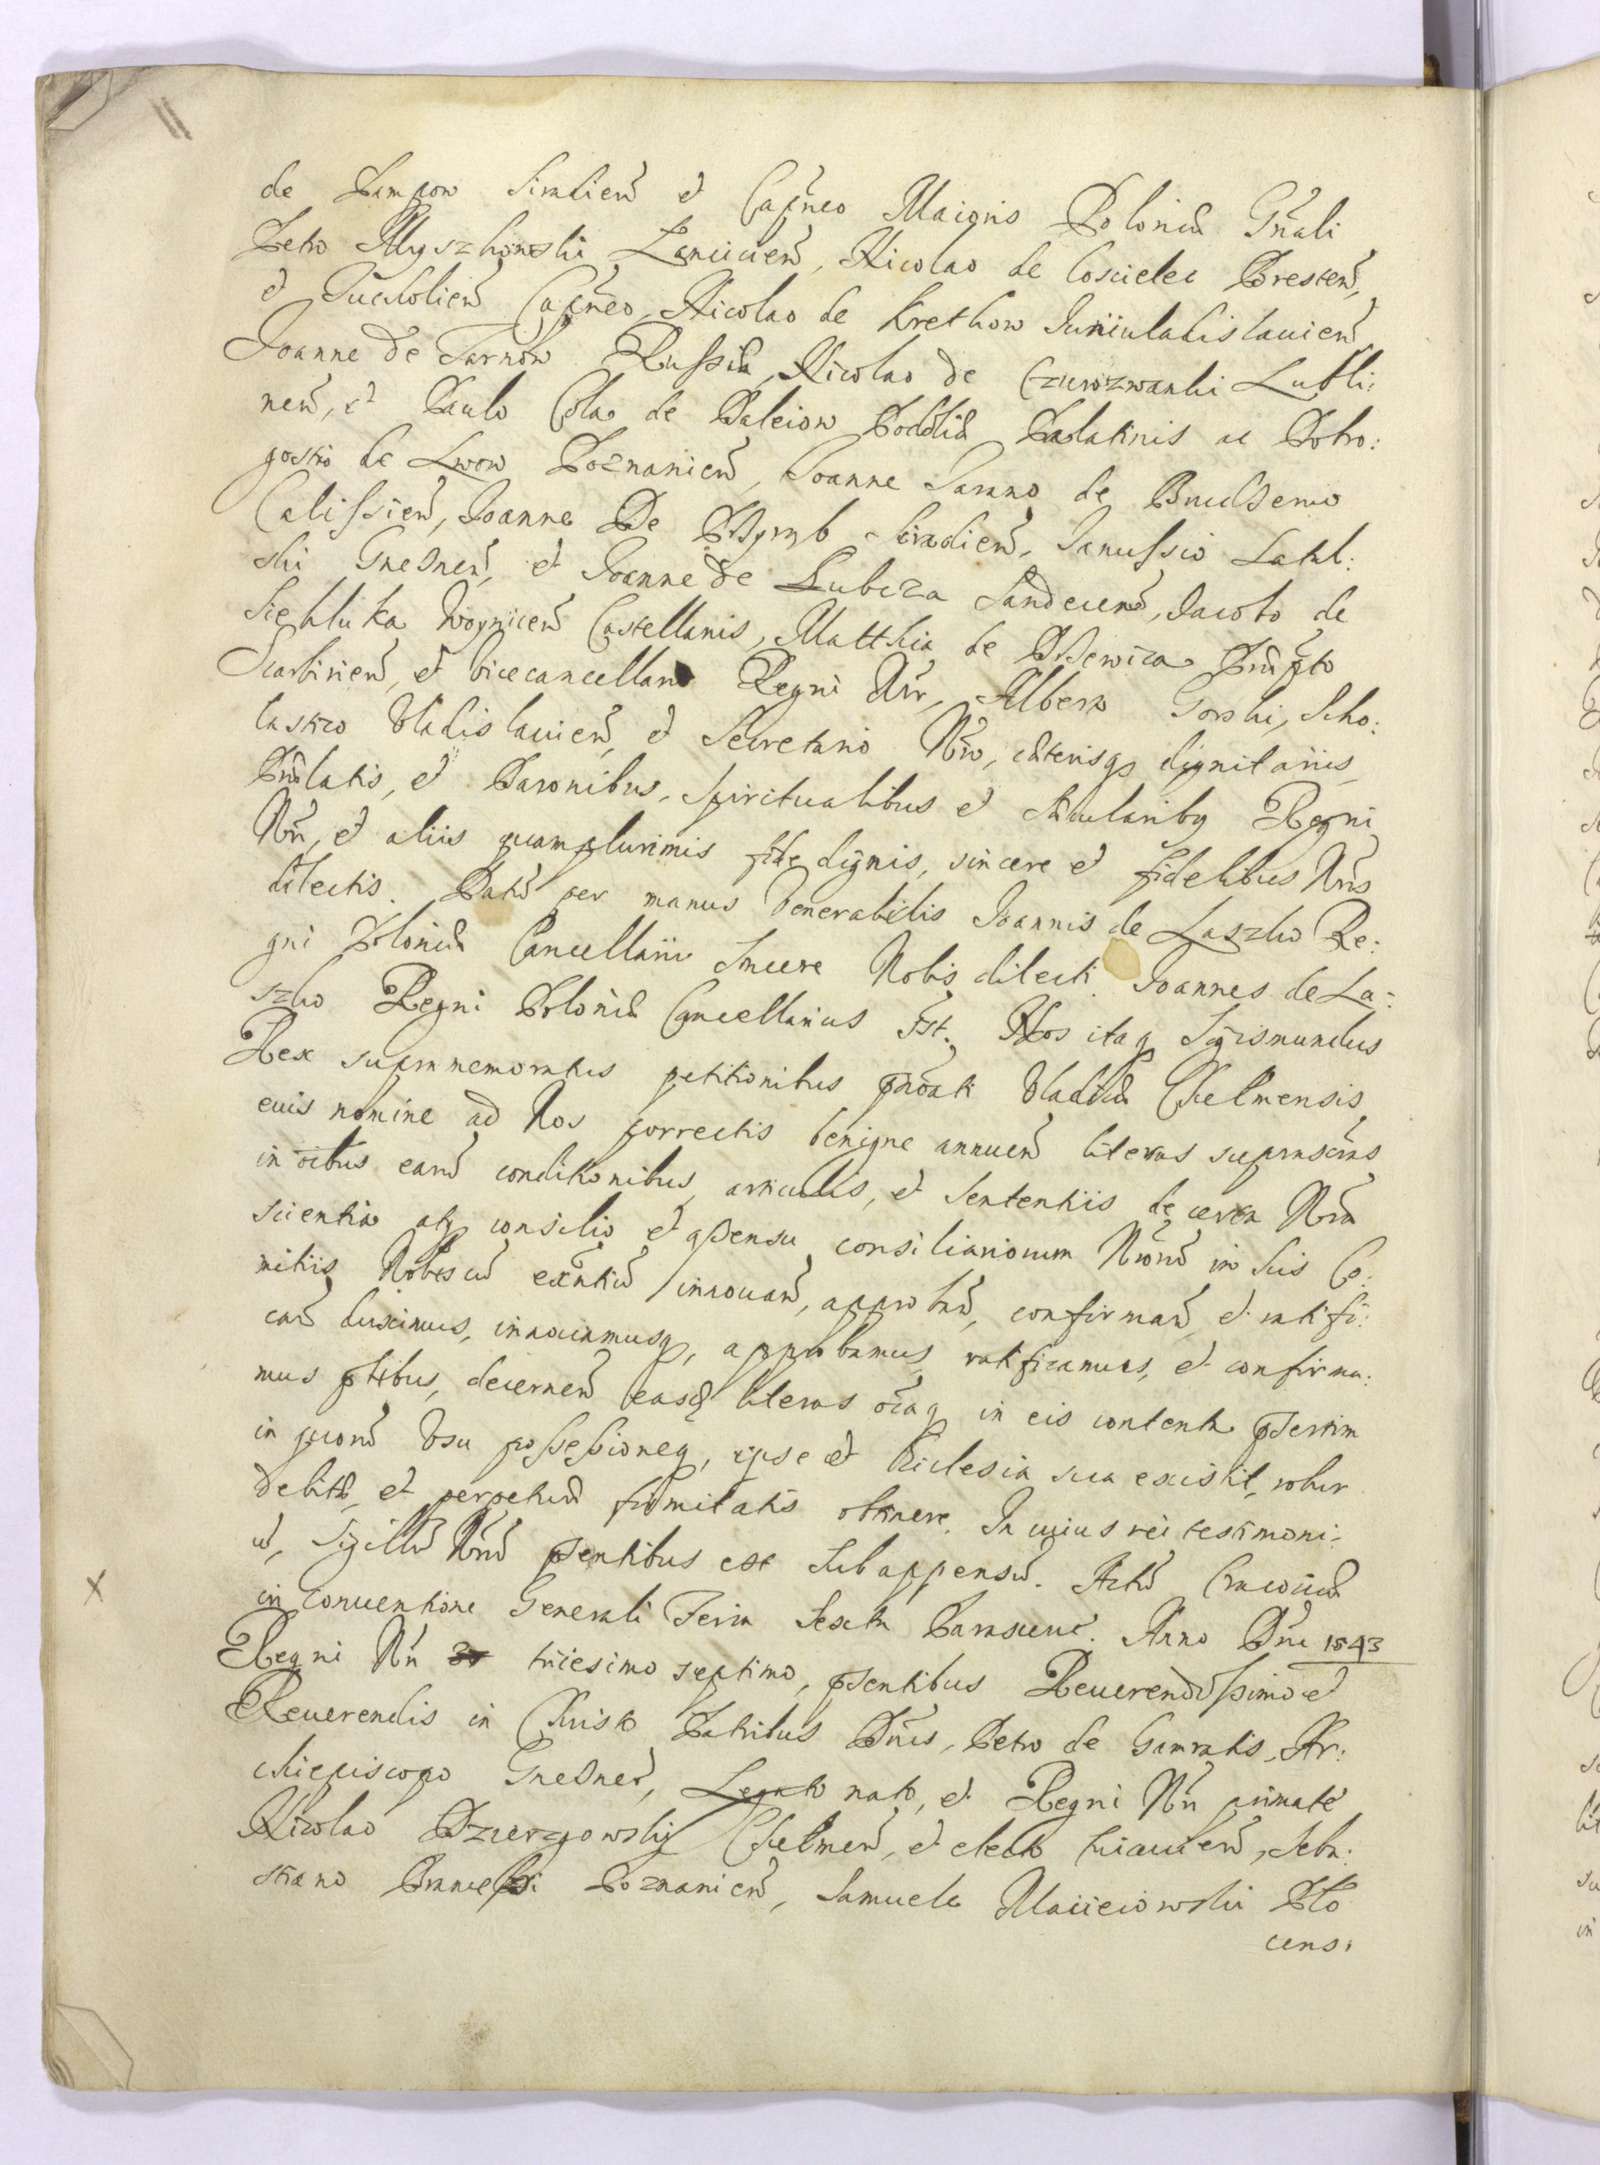 de Pampow Siradien̄ et Cap̄neo Maioris Poloniæ Gn̄ali
Petro Myszkowski Lancicien̄, Nicolao de Coscielec Bresten̄,
et Tucholien̄ Cap̄neo, Nicolao de Krethow Iuniuladislauien̄
Joanne de Tarnow Russiæ, Nicolao de Czurozwanki Lubli:
nen̄, et Paulo Cola de Daleiow Podoliæ Palatinis ac Dobro:
gostio de Lwow Poznanien̄, Joanne Jarand de Brudsewo
Calissien̄, Joanne De Siradien̄, Janussio Latal:
ski Gnesnen̄, et Joanne de Lubcza Sandecen̄, Jacobo de
Siekluka Woynicen̄ Castellanis, Matthia de Dsewica Præpto
Scarbirien̄, et Vicecancellario Regni Nr̄i, Alberto Gorski, Scho:
lastico Vladislauien̄, et Secretario Nr̄o, cæterisq, dignitariis,
Prælatis, et Baronibus, Spiritualibus et Sæcularibq Regni
Nr̄i, et aliis quamplurimis fide dignis, sincere et fidelibus Nr̄is
dilectis. Datū per manus Venerabilis Joannis de Laszko Re:
gni Poloniæ Cancellarii Sincere Nobis dilecti. Joannes de La:
szko Regni Poloniæ Cancellarius sst. Nos itaq Sigismundus
Rex supramemoratus petitionibus præfati Vladicæ Chelmensis,
euis nomine ad Nos porrectis benigne annuen̄ literas suprascr̄as
in oībus earū conditionibus, articulis, et Sententiis de certa Nr̄a
scientia atq consilio et assensu consiliariorum Nr̄orū in his Co:
mitiis Nobiscū exn̄tiū innouan̄, approban̄, confirman̄, et ratifi:
can̄ duximus, innouamusq, approbamus, ratificamus, et confirma:
mus p̄ntibus, decernen̄ easdē literas oīaq in eis contenta p̄sertim
in quorū Vsu possessioneq, ipse et Ecclesia sua existit, robur
debitæ, et perpetuæ firmitatis obtinere. In cuius rei testimoni:
ū, Sigillū Nr̄ū p̄sentibus est Subappensū. Actū Cracouiæ
in Conuentione Generali Feria Sexta Parasceue. Anno Dn̄i 1543
Regni Nr̄i tricesimo septimo, p̄sentibus Reuerendissimo et
Reuerendis in Christo Patribus Dn̄is, Petro de Gamratis, Ar:
chiepiscopo Gnesnen̄, Legato nato, et Regni Nr̄i primate
Nicolao Dzierzgowskij Chelmen̄, et electo Cuiauien̄, Seba:
stiano Branicki Poznanien̄, Samuele Maiieiowski Plo
cens: